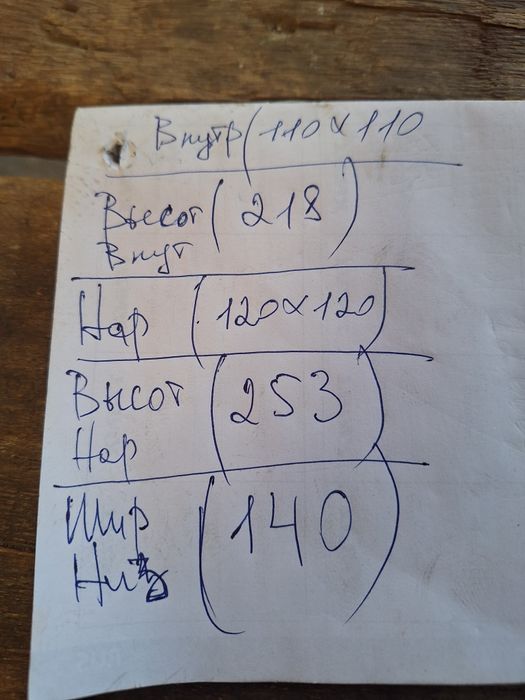 Внутр (110 х 110
Высот (218)
Внут
Нар (120 х 120)
Высот (253)
Нар
Шир (140)
Низ